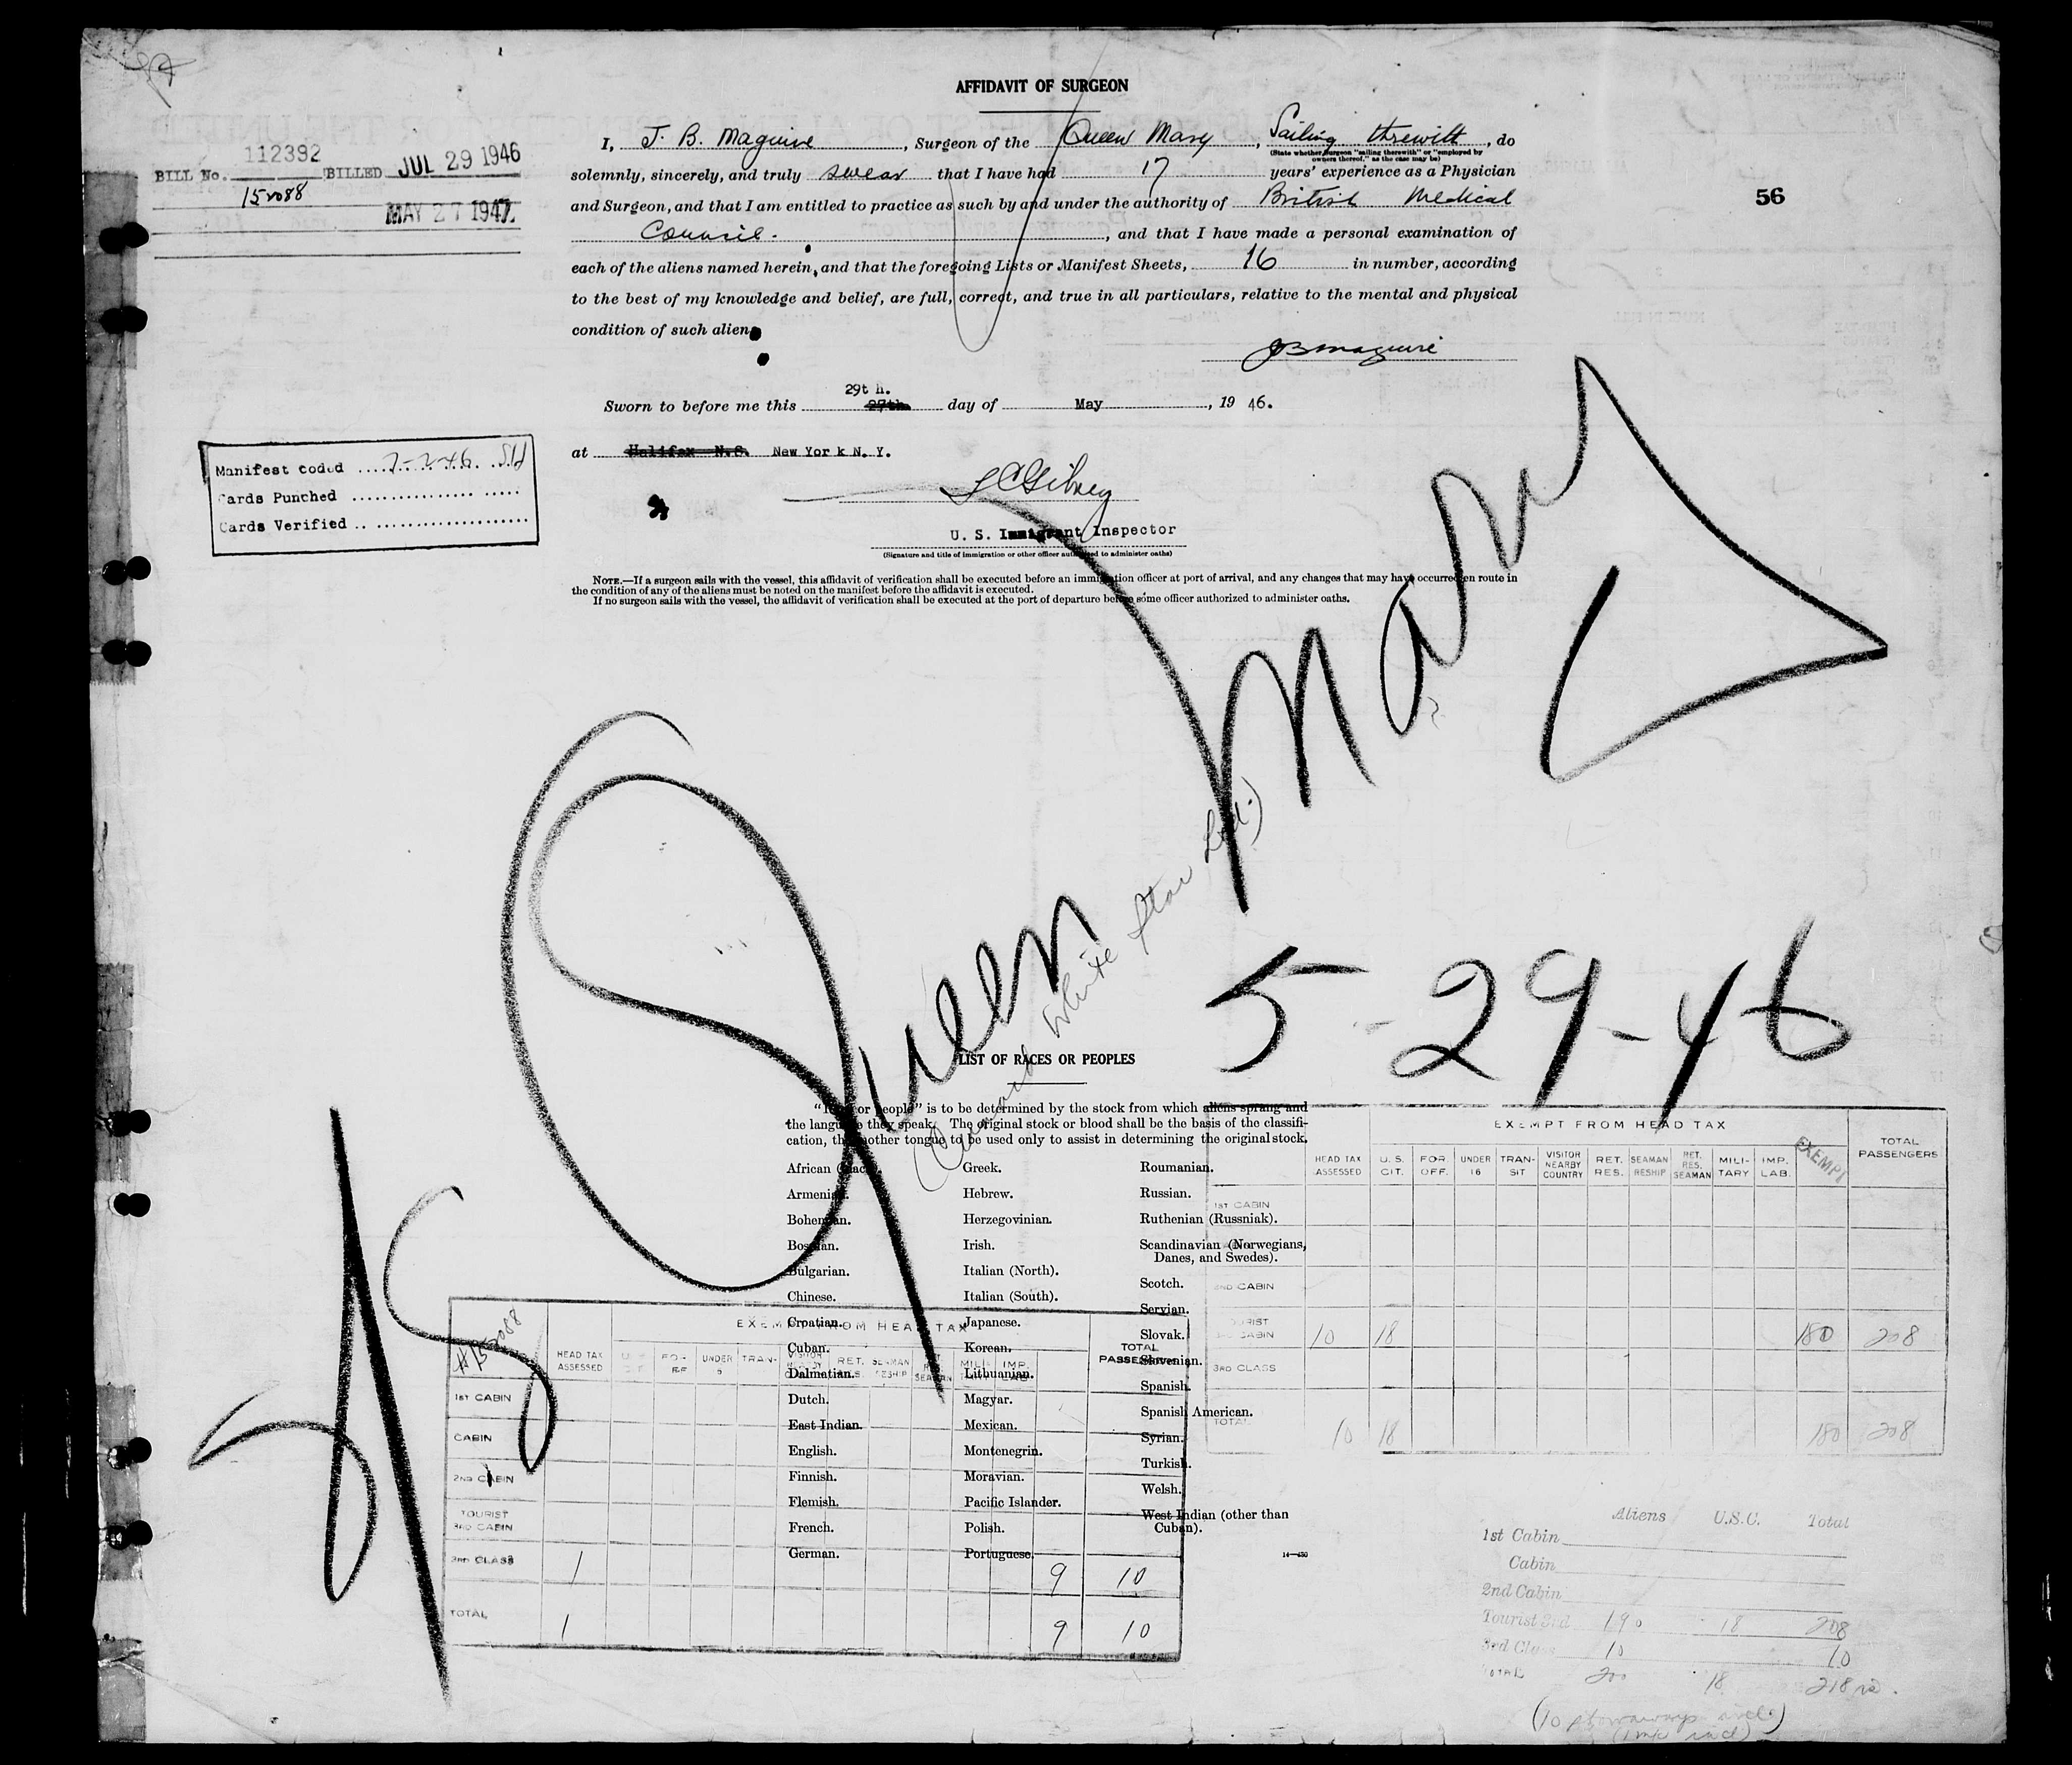 AFFIDAVIT OF SURGEON
112392
BILL No. BILLED JUL 29 1946
152088
MAY 27 1947
56
I, J. B. Maguire, Surgeon of the Queen Mary, Sailing threwith, do
(State whether Surgeon "sailing therewith" or "employed by
owners thereof," as the case may be)
solemnly, sincerely, and truly swear that I have had 17 years' experience as a Physician
and Surgeon, and that I am entitled to practice as such by and under the authority of British Medical
Council., and that I have made a personal examination of
each of the aliens named herein, and that the foregoing Lists or Manifest Sheets, 16 in number, according
to the best of my knowledge and belief, are full, correct, and true in all particulars, relative to the mental and physical
condition of such aliens
JB Maguire
29th.
Sworn to before me this 27th day of May, 19 46.
at Halifax N.S. New York N.Y.
Manifest coded 7-2-46
Cards Punched
Cards Verified
U. S. Immigrant Inspector
(Signature and title of immigration or other officer authorized to administer oaths)
NOTE.—If a surgeon sails with the vessel, this affidavit of verification shall be executed before an immigration officer at port of arrival, and any changes that may have occurred en route in
the condition of any of the aliens must be noted on the manifest before the affidavit is executed.
If no surgeon sails with the vessel, the affidavit of verification shall be executed at the port of departure before some officer authorized to administer oaths.
Queen Mary
(Cunard White Star Ltd.)
5-29-46
LIST OF RACES OR PEOPLES
"Race or people" is to be determined by the stock from which aliens sprang and
the language they speak. The original stock or blood shall be the basis of the classifi-
cation, the mother tongue to be used only to assist in determining the original stock.
African (black).
Armenian.
Bohemian.
Bosnian.
Bulgarian.
Chinese.
Croatian.
Cuban.
Dalmatian.
Dutch.
East Indian.
English.
Finnish.
Flemish.
French.
German.
Greek.
Hebrew.
Herzegovinian.
Irish.
Italian (North).
Italian (South).
Japanese.
Korean.
Lithuanian.
Magyar.
Mexican.
Montenegrin.
Moravian.
Pacific Islander.
Polish.
Portuguese.
Roumanian.
Russian.
Ruthenian (Russniak).
Scandinavian (Norwegians,
Danes, and Swedes).
Scotch.
Servian.
Slovak.
Slovenian.
Spanish.
Spanish American.
Syrian.
Turkish.
Welsh.
West Indian (other than
Cuban).
14—430
EXEMPT FROM HEAD TAX
HEAD TAX ASSESSED U.S. CIT. FOR OFF. UNDER 16 TRAN-SIT VISITOR NEARBY COUNTRY RET. RES. SEAMAN RESHIP RET. RES. SEAMAN MILI-TARY IMP. LAB. EXEMPT TOTAL PASSENGERS
1ST CABIN
2ND CABIN
TOURIST 3RD CABIN 10 18 180 208
3RD CLASS
TOTAL 10 18 180 208
#152088
EXEMPT FROM HEAD TAX
HEAD TAX ASSESSED UNDER TRAN- RET. SEAMAN RESHIP MILI- IMP. TOTAL PASSENGERS
1ST CABIN
CABIN
2ND CABIN
TOURIST 3RD CABIN
3RD CLASS 1 9 10
TOTAL 1 9 10
Aliens U.S.C. Total
1st Cabin
Cabin
2nd Cabin
Tourist 3rd 190 18 208
3rd Class 10 10
TOTAL 200 18 218
(10 stowaways incl.)